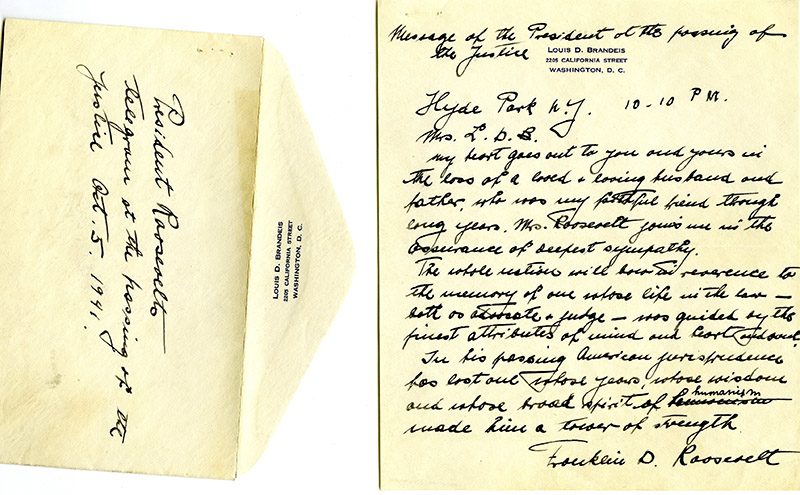 President Roosevelts
telegram at the passing of the
Justice Oct. 5. 1941.
LOUIS D. BRANDEIS
2205 CALIFORNIA STREET
WASHINGTON, D. C.
Message of the President at the passing of
the Justice
LOUIS D. BRANDEIS
2205 CALIFORNIA STREET
WASHINGTON, D. C.
Hyde Park N.Y. 10-10 P.M.
Mrs. L. D. B.
My heart goes out to you and yours in
the loss of a loved + loving husband and
father, who was my faithful friend through
long years. Mrs. Roosevelt joins me in the
assurance of deepest sympathy.
The whole nation will bow in reverence to
the memory of one whose life in the law —
both as advocate + judge — was guided by the
finest attributes of mind and heart and soul.
In his passing American jurisprudence
has lost one whose years, whose wisdom
and whose broad spirit of humanism
made him a tower of strength.
Franklin D. Roosevelt